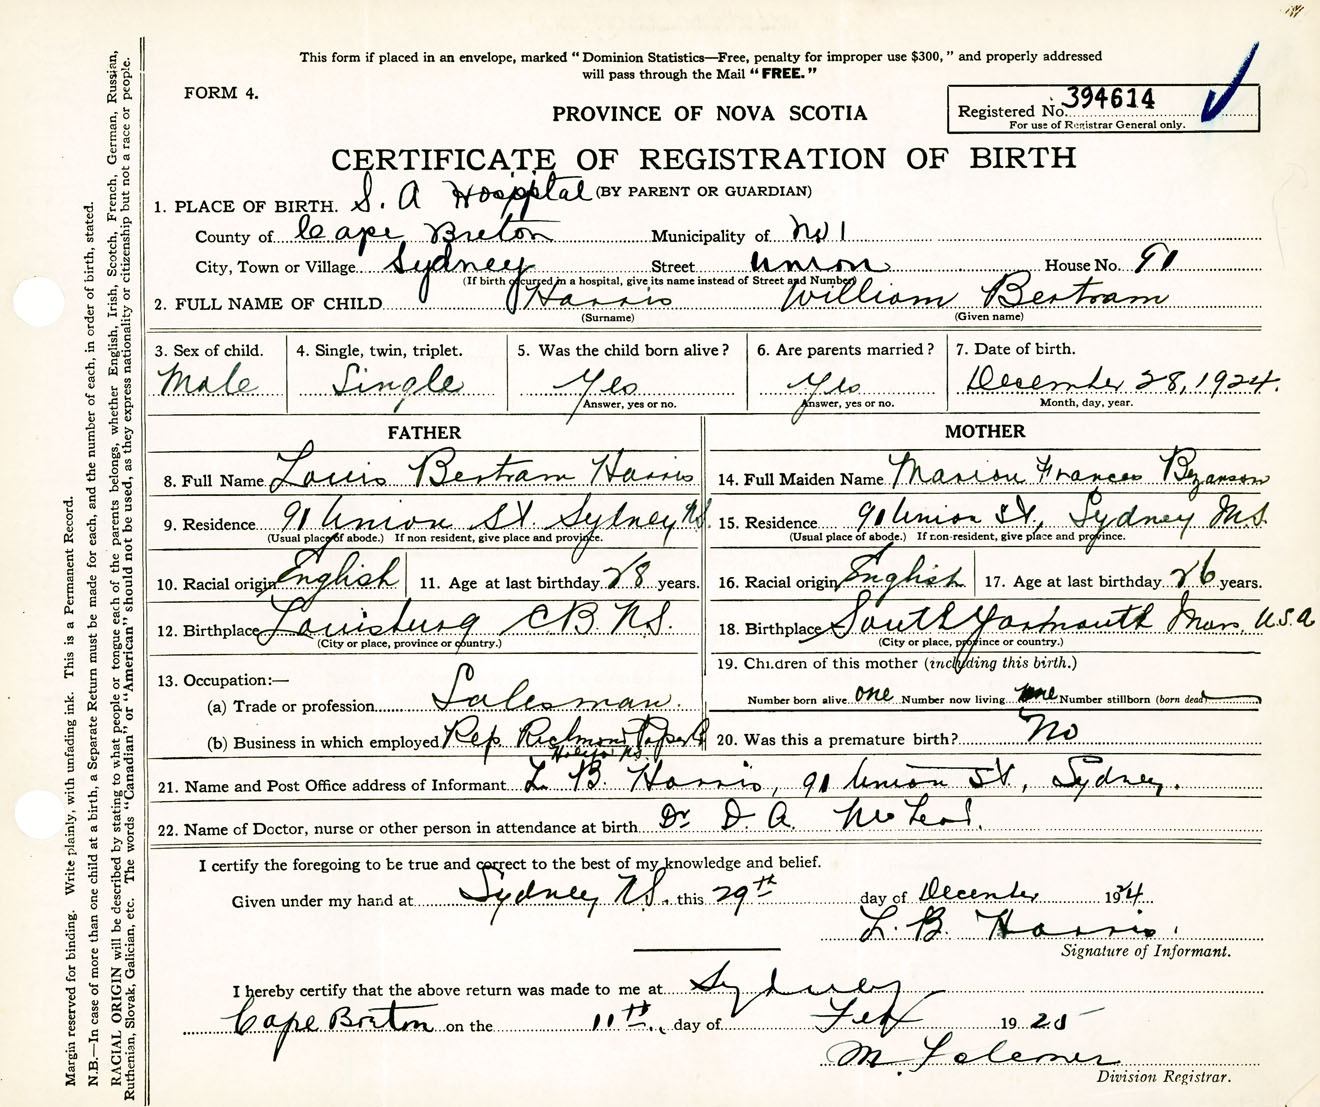 This form if placed in an envelope, marked "Dominion Statistics—Free, penalty for improper use $300," and properly addressed
will pass through the Mail "FREE."
FORM 4.
PROVINCE OF NOVA SCOTIA
Registered No. 394614
For use of Registrar General only.
CERTIFICATE OF REGISTRATION OF BIRTH
S. A Hospital (BY PARENT OR GUARDIAN)
1. PLACE OF BIRTH.
County of Cape Breton Municipality of No 1
City, Town or Village Sydney Street Union House No. 91
(If birth occurred in a hospital, give its name instead of Street and Number)
2. FULL NAME OF CHILD Harris William Bertram
(Surname) (Given name)
3. Sex of child. 4. Single, twin, triplet. 5. Was the child born alive? 6. Are parents married? 7. Date of birth.
Male Single Yes Yes December 28, 1924.
Answer, yes or no. Answer, yes or no. Month, day, year.
FATHER MOTHER
8. Full Name Louis Bertram Harris 14. Full Maiden Name Marion Frances Bezanson
9. Residence 91 Union St Sydney N.S. 15. Residence 91 Union St, Sydney N.S.
(Usual place of abode.) If non resident, give place and province. (Usual place of abode.) If non-resident, give place and province.
10. Racial origin English 11. Age at last birthday 28 years. 16. Racial origin English 17. Age at last birthday 26 years.
12. Birthplace Louisburg C.B. N.S. 18. Birthplace South Yarmouth Mass. U.S.A
(City or place, province or country.) (City or place, province or country.)
19. Children of this mother (including this birth.)
13. Occupation:—
(a) Trade or profession Salesman. Number born alive one Number now living one Number stillborn (born dead)
(b) Business in which employed Rep. Richmond Paper Co 20. Was this a premature birth? No
Halifax N.S.
21. Name and Post Office address of Informant L. B. Harris, 91 Union St, Sydney.
22. Name of Doctor, nurse or other person in attendance at birth Dr D. A. McLeod.
I certify the foregoing to be true and correct to the best of my knowledge and belief.
Given under my hand at Sydney N.S. this 29th day of December 1924
L. B. Harris.
Signature of Informant.
I hereby certify that the above return was made to me at Sydney
Cape Breton on the 11th day of Feb 1925
M.
Division Registrar.
Margin reserved for binding. Write plainly, with unfading ink. This is a Permanent Record.
N.B.—In case of more than one child at a birth, a Separate Return must be made for each, and the number of each, in order of birth, stated.
RACIAL ORIGIN will be described by stating to what people or tongue each of the parents belongs, whether English, Irish, Scotch, French, German, Russian,
Ruthenian, Slovak, Galician, etc. The words "Canadian" or "American" should not be used, as they express nationality or citizenship but not a race or people.